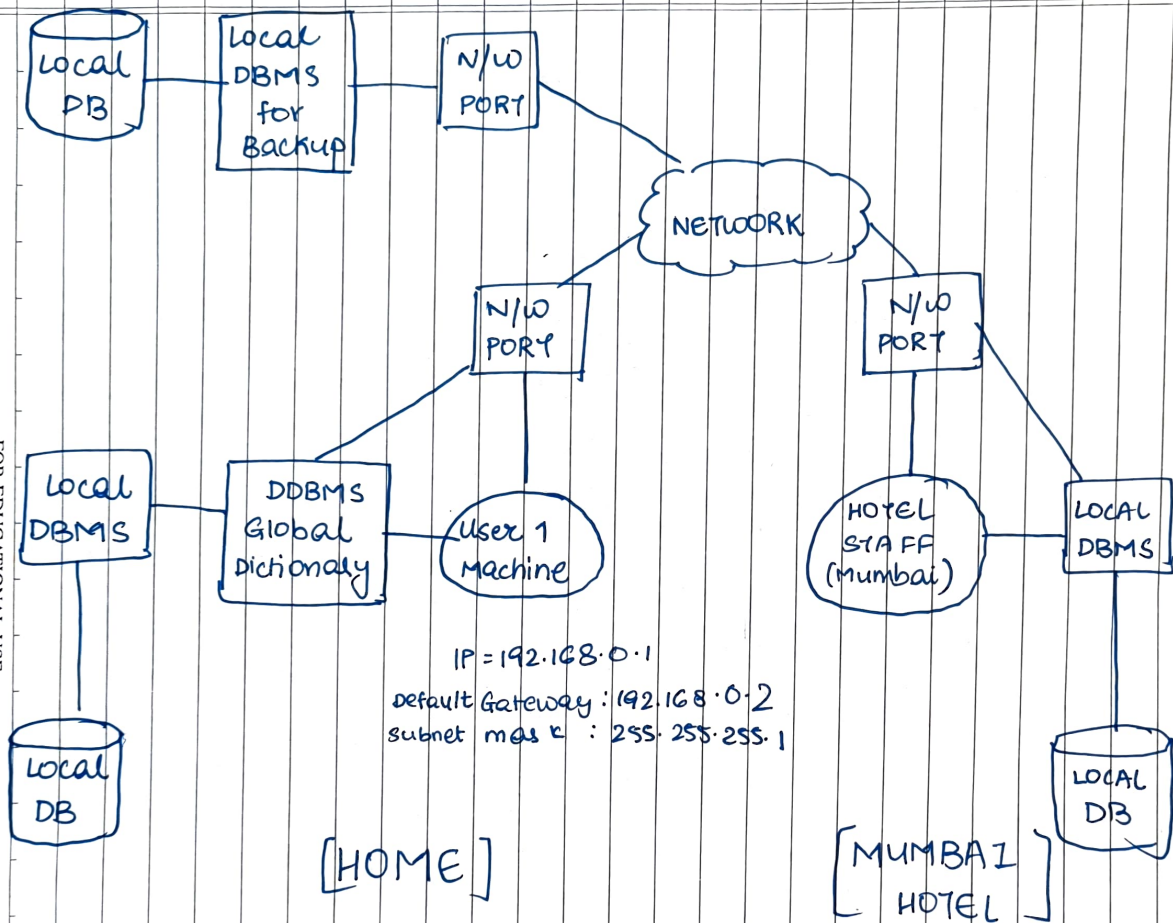 Local
DB
Local
DBMS
for
Backup
N/W
PORT
NETWORK
N/W
PORT
N/W
PORT
Local
DBMS
DDBMS
Global
Dictionary
User 1
Machine
HOTEL
STAFF
(Mumbai)
LOCAL
DBMS
IP = 192.168.0.1
Default Gateway : 192.168.0.2
subnet mask : 255.255.255.1
Local
DB
LOCAL
DB
[HOME]
[MUMBAI
HOTEL]